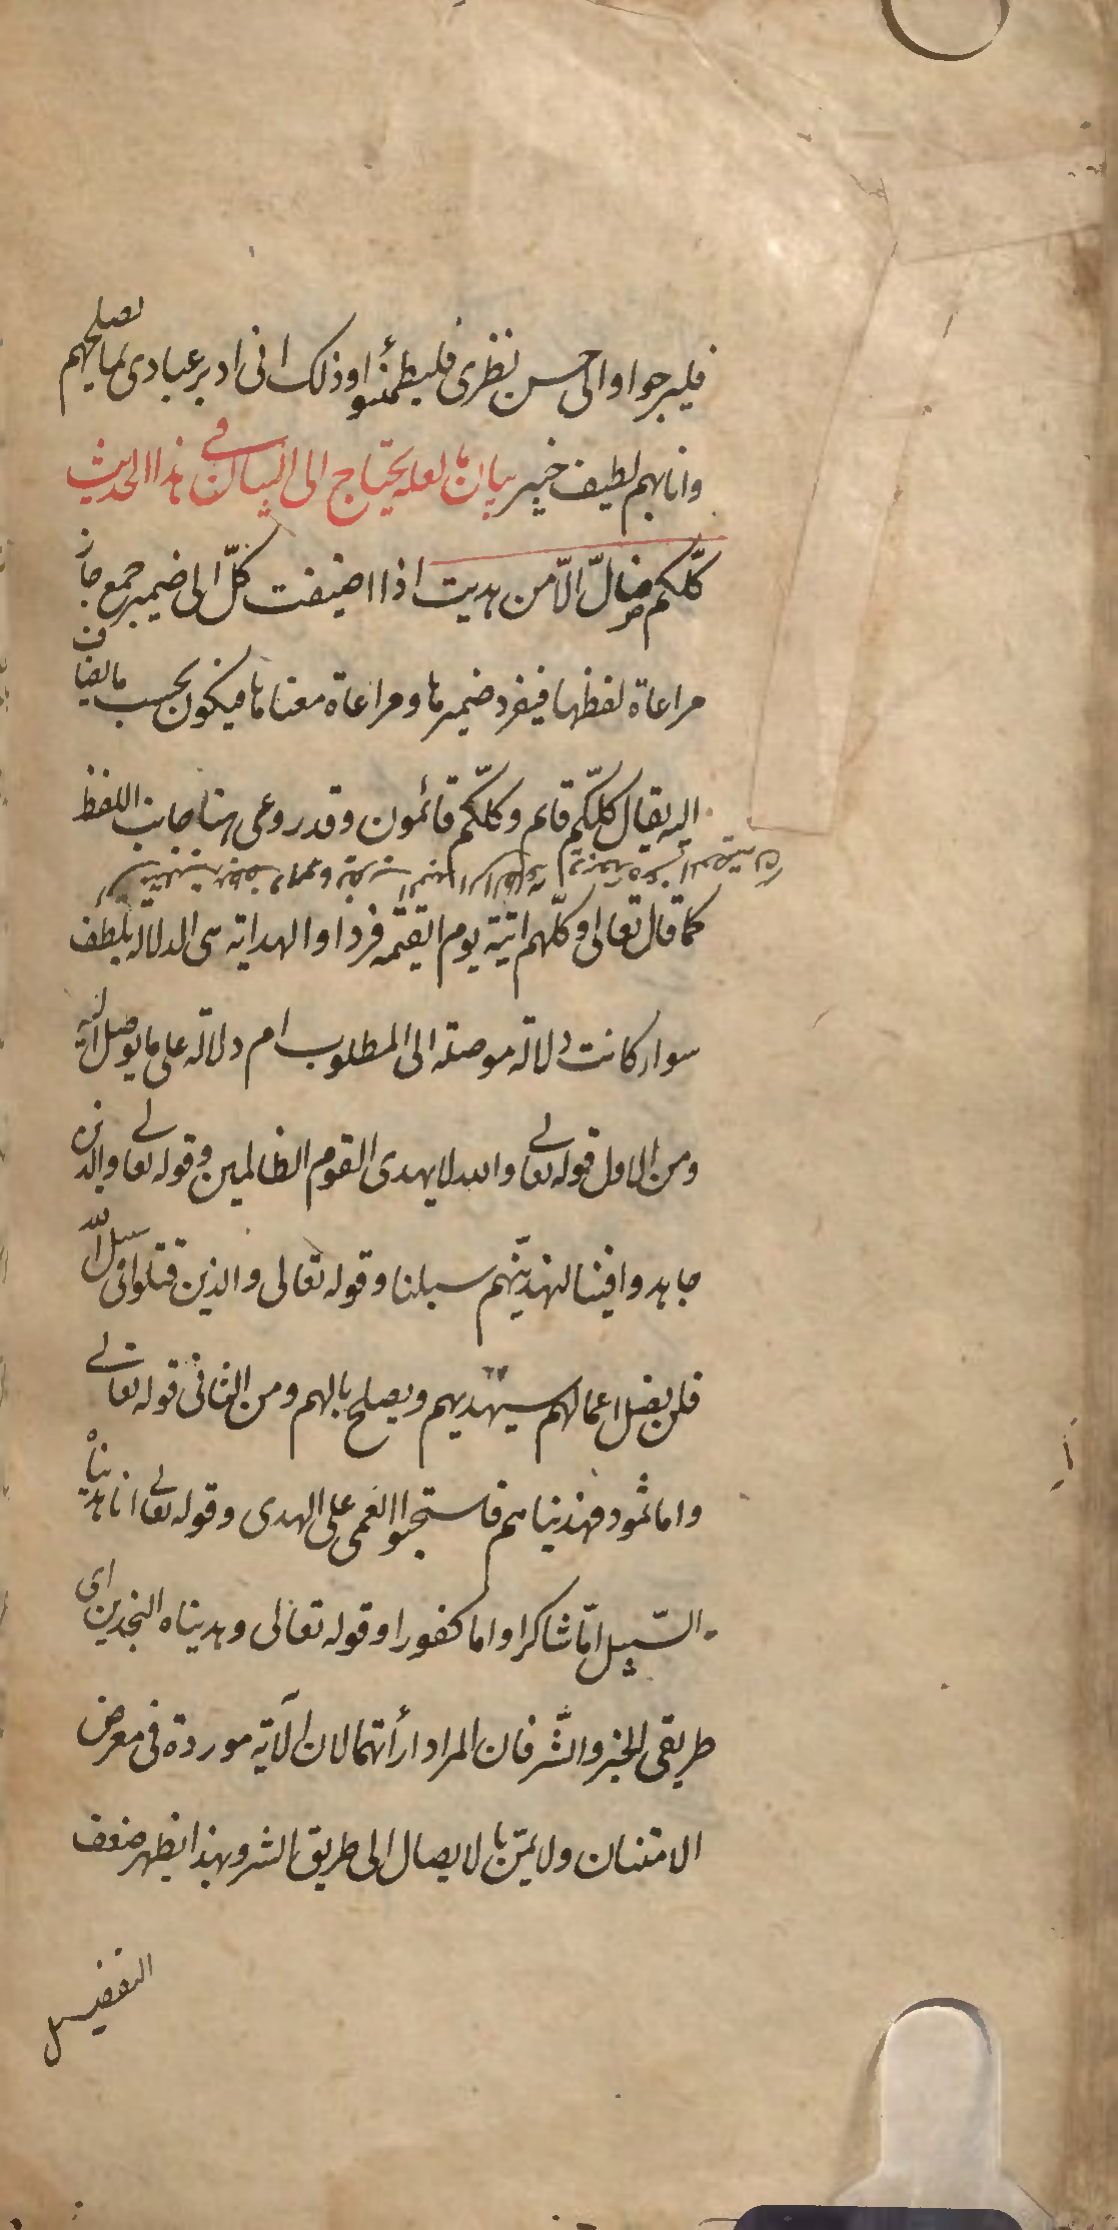 فليرجوا والى حسن نظرى فليطمئنوا وذلك انى ادبر عبادى لما يصلحهم
وانا بهم لطيف خبير بيان ما لعله يحتاج الى البيان فى هذا الحديث
كلّكم ضالّ الّا من هديت اذا اضيفت كلّ الى ضمير جمع جاز
مراعاة لفظها فيفرد ضميرها ومراعاة معناها فيكون بحسب ما يضاف
اليه يقال كلّكم قائم وكلّكم قائمون وقد روعى هنا جانب اللفظ
كما قال تعالى وكلّهم اتيه يوم القيمة فردا والهداية هى الدلالة بلطف
سواء كانت دلالة موصلة الى المطلوب ام دلالة على ما يوصل اليه
ومن الاول قوله تعالى والله لا يهدى القوم الظالمين وقوله تعالى والذين
جاهدوا فينا لنهدينّهم سبلنا وقوله تعالى والذين قتلوا فى سبيل الله
فلن يضل اعمالهم سيهديهم ويصلح بالهم ومن الثانى قوله تعالى
واما ثمود فهديناهم فاستحبوا العمى على الهدى وقوله تعالى انا هديناه
السّبيل امّا شاكرا واما كفورا وقوله تعالى وهديناه النجدين اى
طريقى الخير والشّر فان المراد ارأتهما لان الآية موردة فى معرض
الامتنان ولا يمتنّ بالايصال الى طريق الشر وبهذا يظهر ضعف
التفصيل